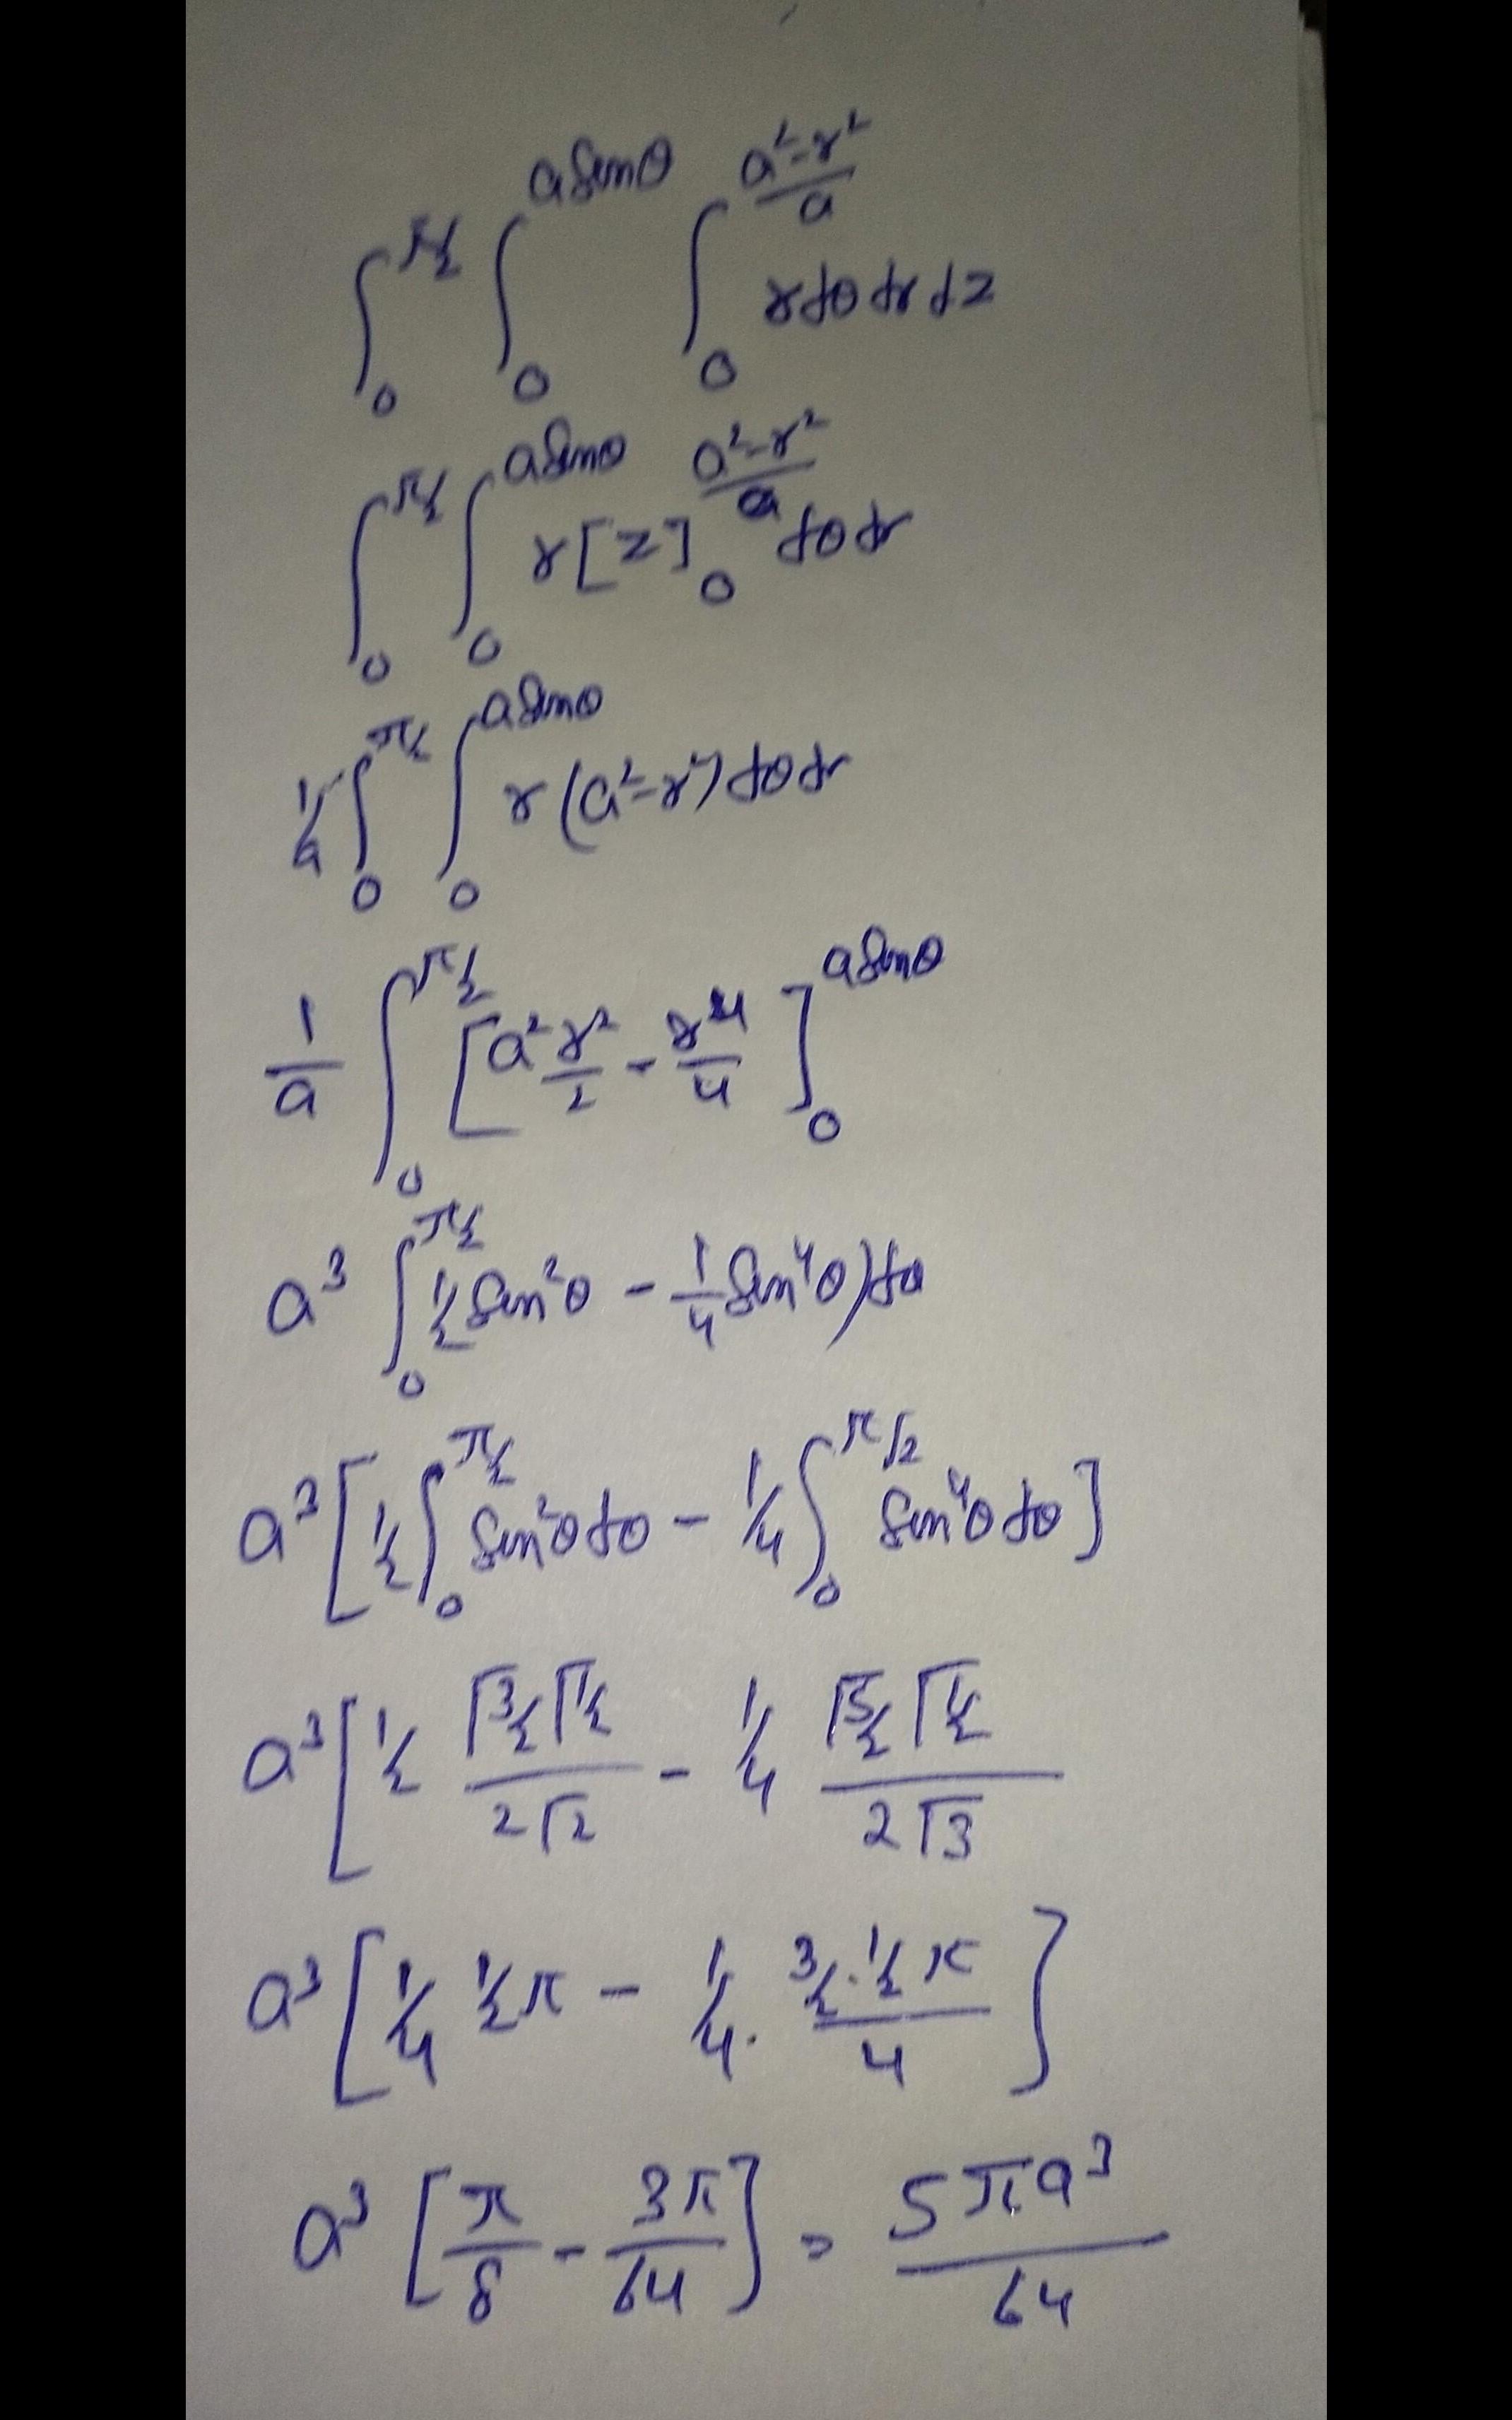 ∫₀^{π/2} ∫₀^{a sinθ} ∫₀^{(a²-r²)/a} r dθ dr dz
∫₀^{π/2} ∫₀^{a sinθ} r[z]₀^{(a²-r²)/a} dθ dr
1/a ∫₀^{π/2} ∫₀^{a sinθ} r(a²-r²) dθ dr
1/a ∫₀^{π/2} [a² r²/2 - r⁴/4]₀^{a sinθ}
a³ ∫₀^{π/2} 1/2 sin²θ - 1/4 sin⁴θ) dθ
a³ [1/2 ∫₀^{π/2} sin²θ dθ - 1/4 ∫₀^{π/2} sin⁴θ dθ]
a³ [1/2 (Γ3/2 Γ1/2)/(2 Γ2) - 1/4 (Γ5/2 Γ1/2)/(2 Γ3)
a³ [1/4 1/2 π - 1/4 · (3/2 · 1/2 π)/4]
a³ [π/8 - 3π/64] = 5πa³/64